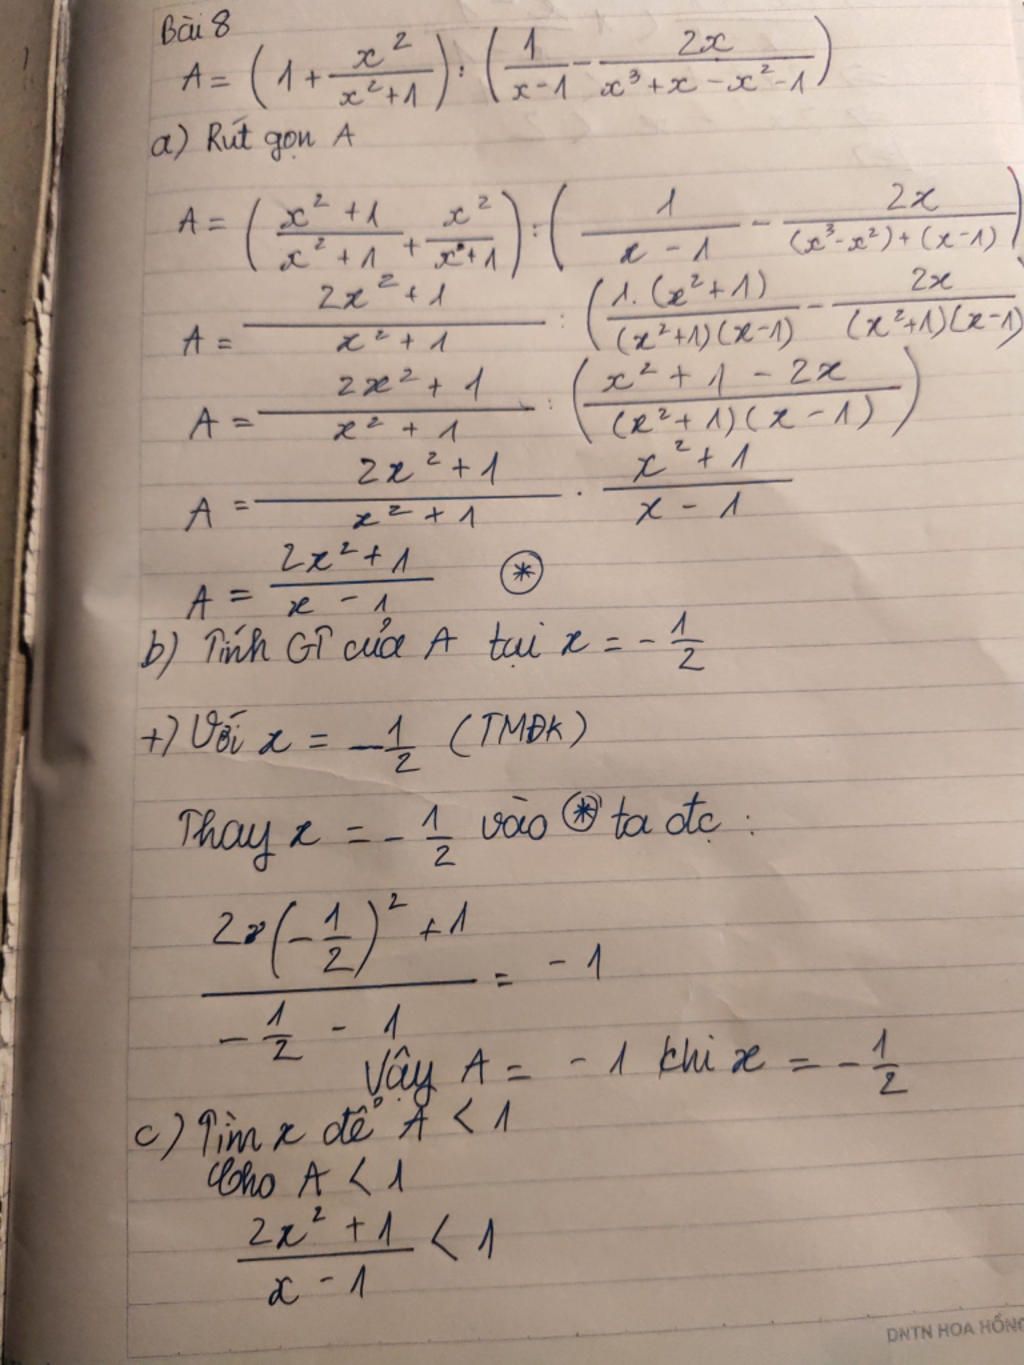 Bài 8
A = (1 + x²/(x²+1)) : (1/(x-1) - 2x/(x³+x-x²-1))
a) Rút gọn A
A = ((x²+1)/(x²+1) + x²/(x²+1)) : (1/(x-1) - 2x/((x³-x²)+(x-1)))
A = (2x²+1)/(x²+1) : (1.(x²+1)/((x²+1)(x-1)) - 2x/((x²+1)(x-1))
A = (2x²+1)/(x²+1) : ((x²+1-2x)/((x²+1)(x-1)))
A = (2x²+1)/(x²+1) . (x²+1)/(x-1)
A = (2x²+1)/(x-1) ⊛
b) Tính GT của A tại x = -1/2
+) Với x = -1/2 (TMĐK)
Thay x = -1/2 vào ⊛ ta đc :
(2.(-1/2)²+1)/(-1/2 - 1) = -1
Vậy A = -1 khi x = -1/2
c) Tìm x để A < 1
Cho A < 1
(2x²+1)/(x-1) < 1
DNTN HOA HỒNG